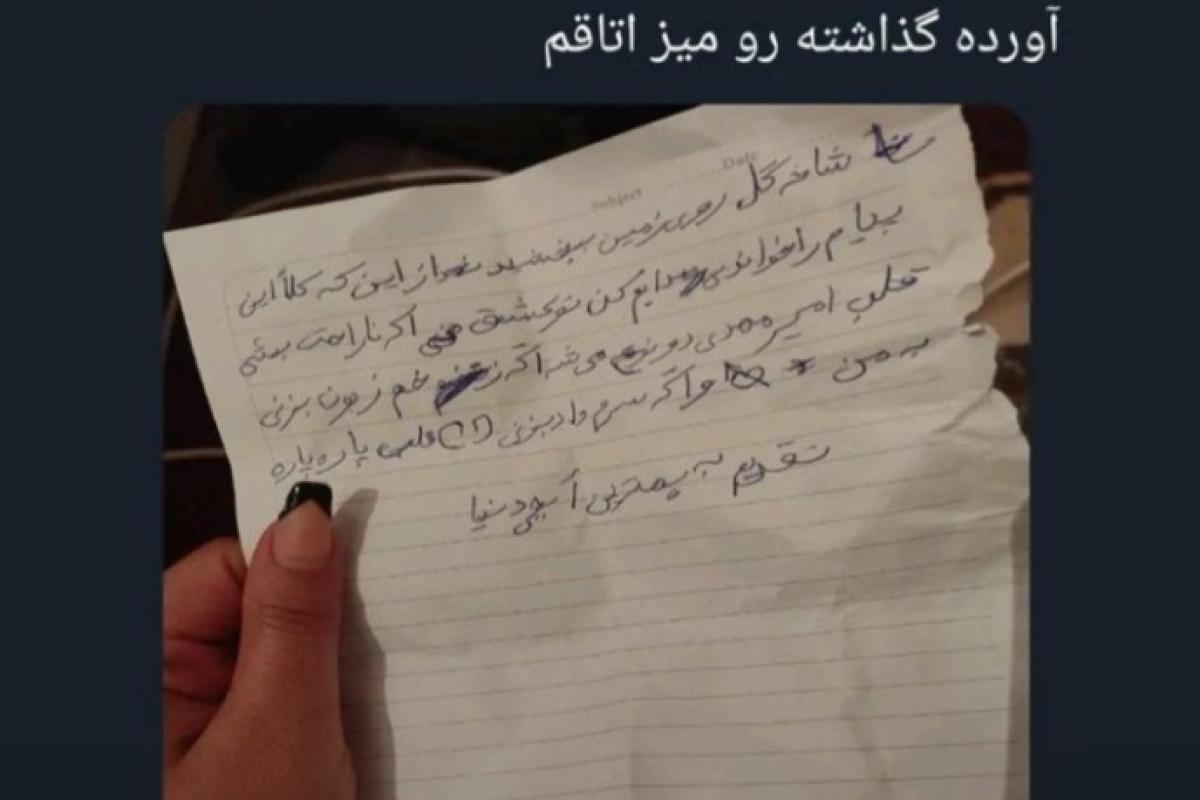 آورده گذاشته رو میز اتاقم
Subject
Date
شاخه گل روی زمین ببخشید از این که کلاً این
پیام را خواندی صدایم کن تو عشق منی اگر ناراحت بشی
قلب امیرمهدی دو نیم می‌شه اگر زخم زبونا بزنی
به من و اگر سرم داد بزنی قلبم پاره پاره
تقدیم به بهترین آبجی دنیا